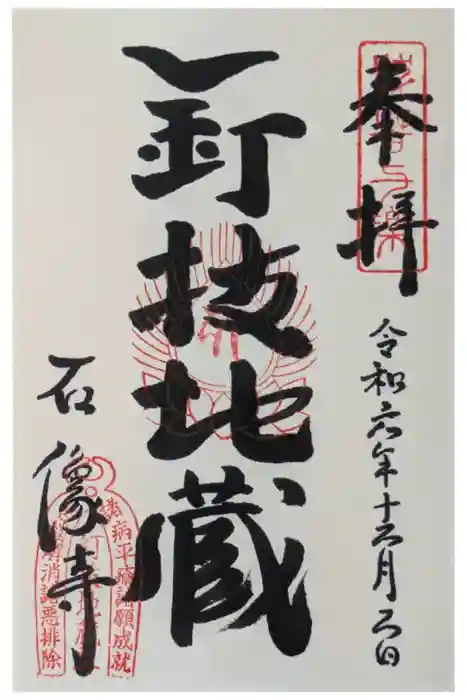 奉拝
抜苦与楽
令和六年十二月日
釘抜地蔵
石像寺
病平癒諸願成就
消諸悪排除